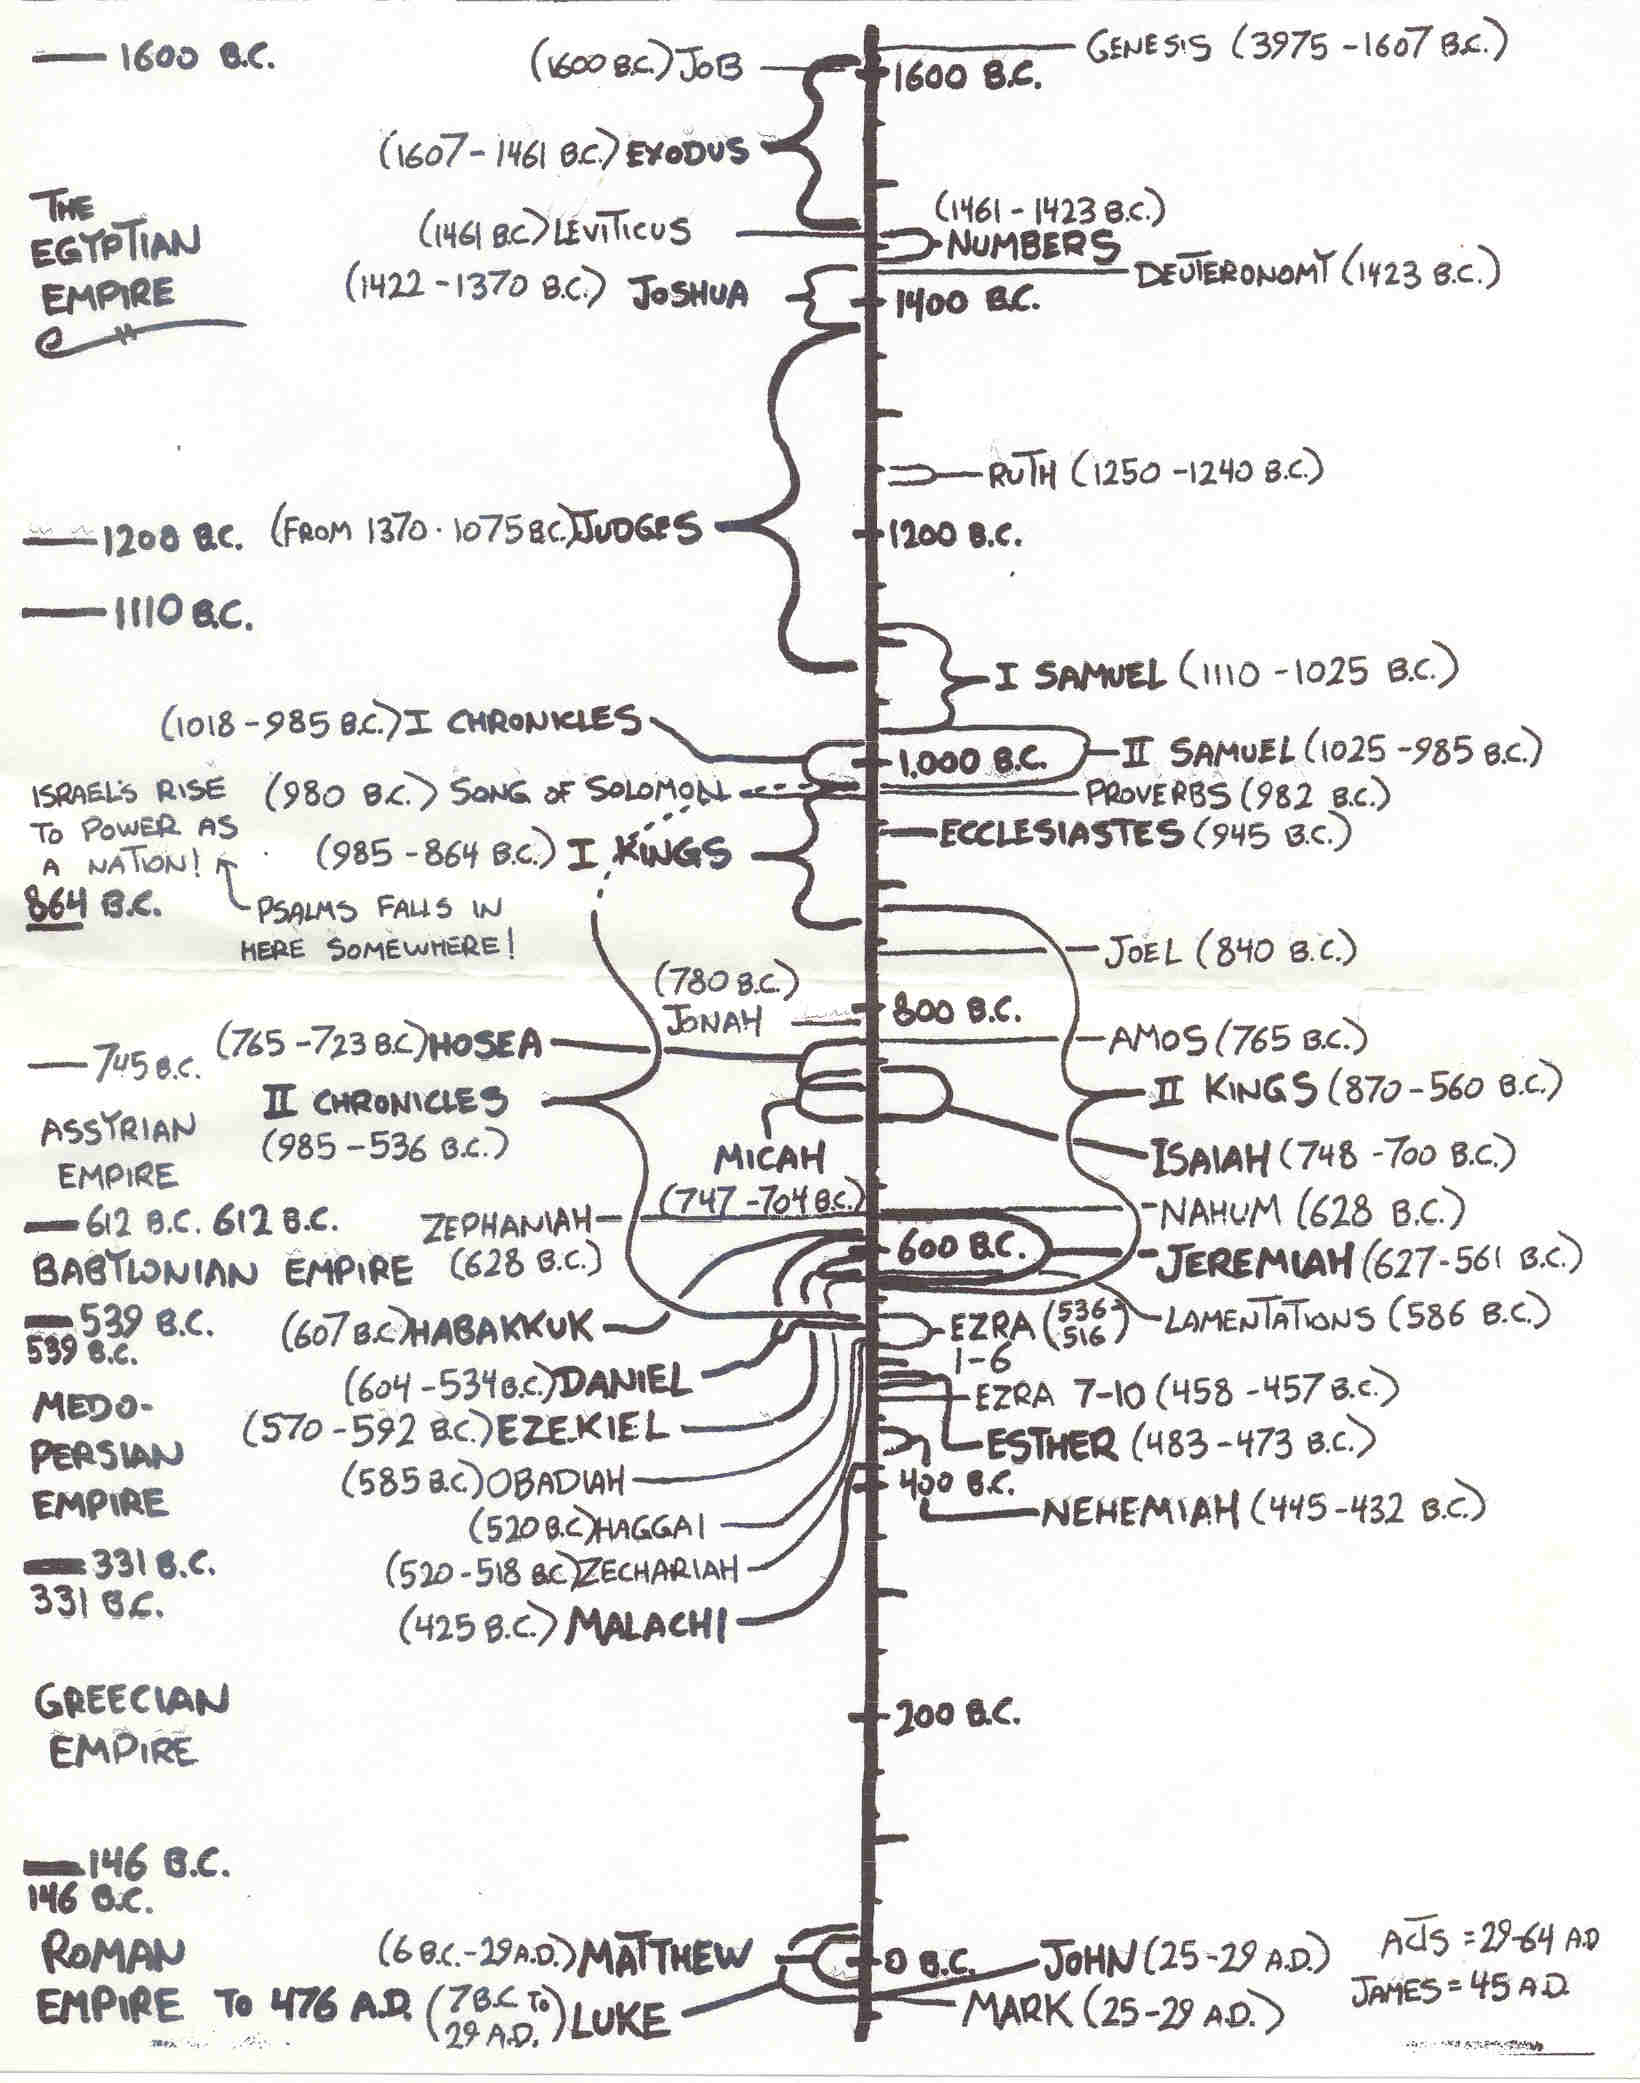 1600 B.C.
(1600 B.C.) JOB
GENESIS (3975 - 1607 B.C.)
1600 B.C.
(1607 - 1461 B.C.) EXODUS
THE
EGYPTIAN
EMPIRE
(1461 B.C.) LEVITICUS
(1461 - 1423 B.C.)
NUMBERS
DEUTERONOMY (1423 B.C.)
(1422 - 1370 B.C.) JOSHUA
1400 B.C.
RUTH (1250 - 1240 B.C.)
1200 B.C.
(FROM 1370 - 1075 B.C.) JUDGES
1200 B.C.
1110 B.C.
I SAMUEL (1110 - 1025 B.C.)
(1018 - 985 B.C.) I CHRONICLES
1,000 B.C.
II SAMUEL (1025 - 985 B.C.)
ISRAEL'S RISE
TO POWER AS
A NATION!
(980 B.C.) SONG OF SOLOMON
PROVERBS (982 B.C.)
ECCLESIASTES (945 B.C.)
(985 - 864 B.C.) I KINGS
864 B.C.
PSALMS FALLS IN
HERE SOMEWHERE!
JOEL (840 B.C.)
(780 B.C.)
JONAH
800 B.C.
(765 - 723 B.C.) HOSEA
AMOS (765 B.C.)
745 B.C.
II CHRONICLES
(985 - 536 B.C.)
II KINGS (870 - 560 B.C.)
ASSYRIAN
EMPIRE
MICAH
(747 - 704 B.C.)
ISAIAH (748 - 700 B.C.)
612 B.C. 612 B.C.
ZEPHANIAH
(628 B.C.)
NAHUM (628 B.C.)
BABYLONIAN EMPIRE
600 B.C.
JEREMIAH (627 - 561 B.C.)
539 B.C.
539 B.C.
(607 B.C.) HABAKKUK
EZRA (536-
516)
1-6
LAMENTATIONS (586 B.C.)
(604 - 534 B.C.) DANIEL
EZRA 7-10 (458 - 457 B.C.)
MEDO-
PERSIAN
EMPIRE
(570 - 592 B.C.) EZEKIEL
ESTHER (483 - 473 B.C.)
(585 B.C.) OBADIAH
400 B.C.
NEHEMIAH (445 - 432 B.C.)
(520 B.C.) HAGGAI
(520 - 518 B.C.) ZECHARIAH
331 B.C.
331 B.C.
(425 B.C.) MALACHI
GREECIAN
EMPIRE
200 B.C.
146 B.C.
146 B.C.
ROMAN
EMPIRE TO 476 A.D.
(6 B.C. - 29 A.D.) MATTHEW
0 B.C.
JOHN (25 - 29 A.D.)
ACTS = 29-64 A.D
JAMES = 45 A.D.
(7 B.C. TO
29 A.D.) LUKE
MARK (25 - 29 A.D.)